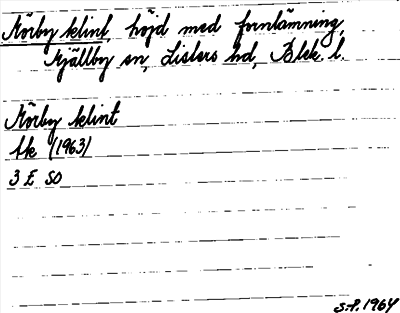 Mörby klint, höjd med fornlämning,
Mjällby sn, Listers hd, Blek. l.
Mörby klint
Ek (1963)
3 E SO
S.P. 1964